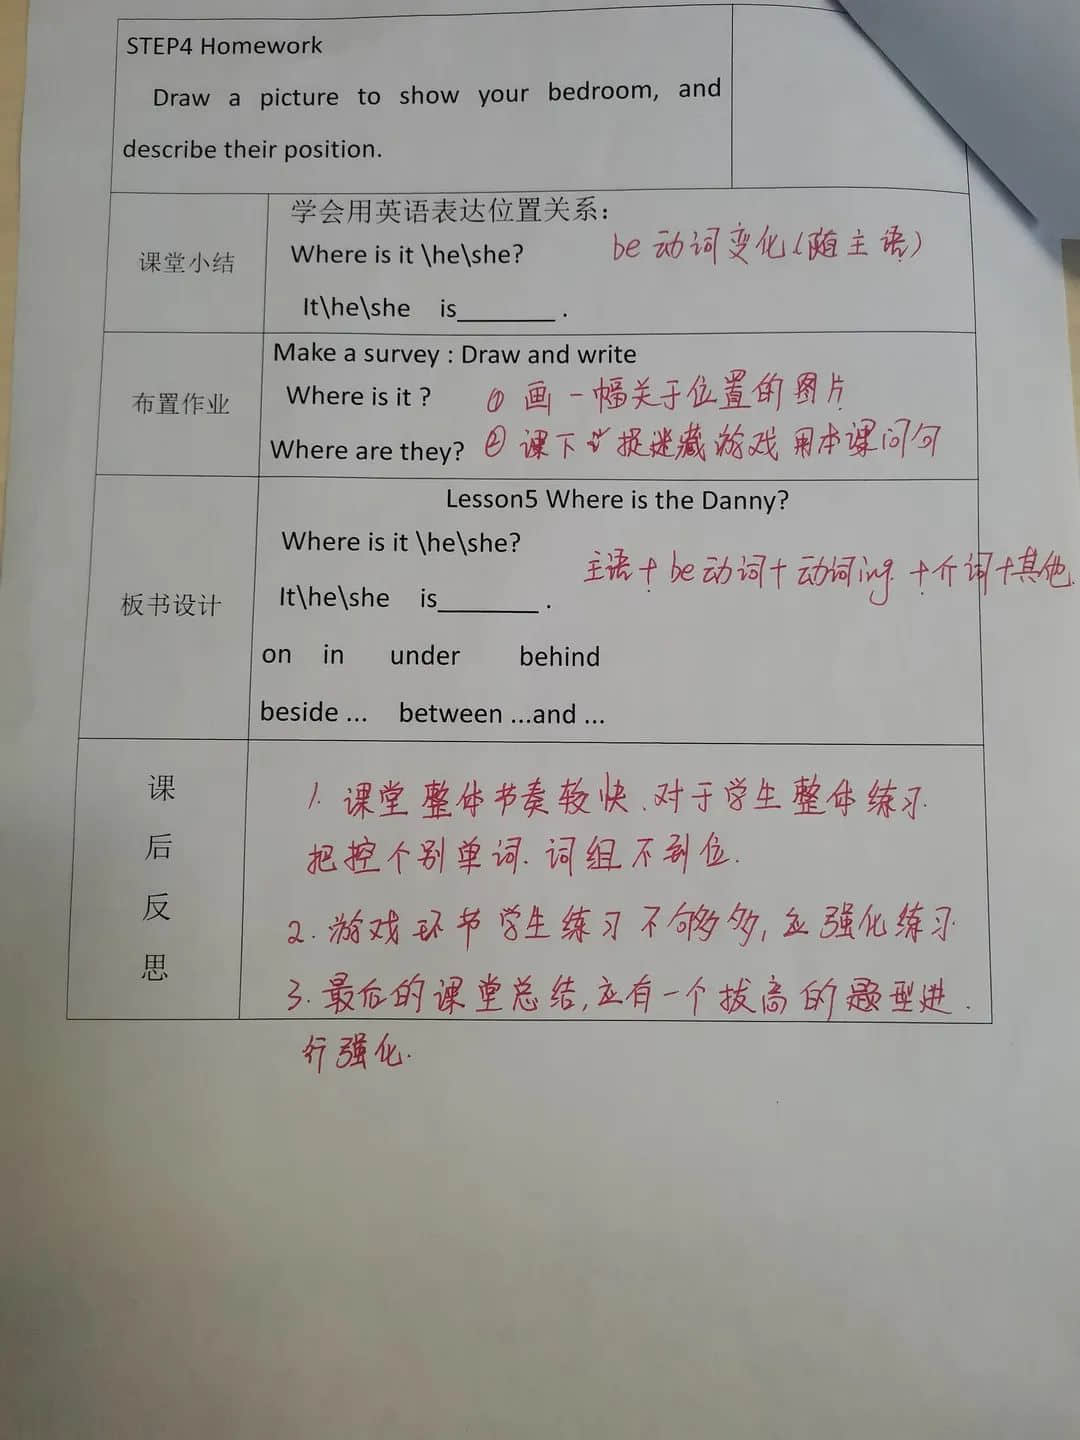 STEP4 Homework
Draw a picture to show your bedroom, and
describe their position.
课堂小结
学会用英语表达位置关系：
Where is it \he\she?
be动词变化（随主语）
It\he\she is_______ .
布置作业
Make a survey : Draw and write
Where is it ?
① 画一幅关于位置的图片
Where are they?
② 课下 捉迷藏游戏 用本课问句
板书设计
Lesson5 Where is the Danny?
Where is it \he\she?
主语+be动词+动词ing+介词+其他.
It\he\she is_______ .
on in under behind
beside ... between ...and ...
课
后
反
思
1. 课堂整体节奏较快.对于学生整体练习.
把控个别单词.词组不到位.
2. 游戏环节学生练习不够多,应强化练习.
3. 最后的课堂总结,应有一个拔高的题型进.
行强化.